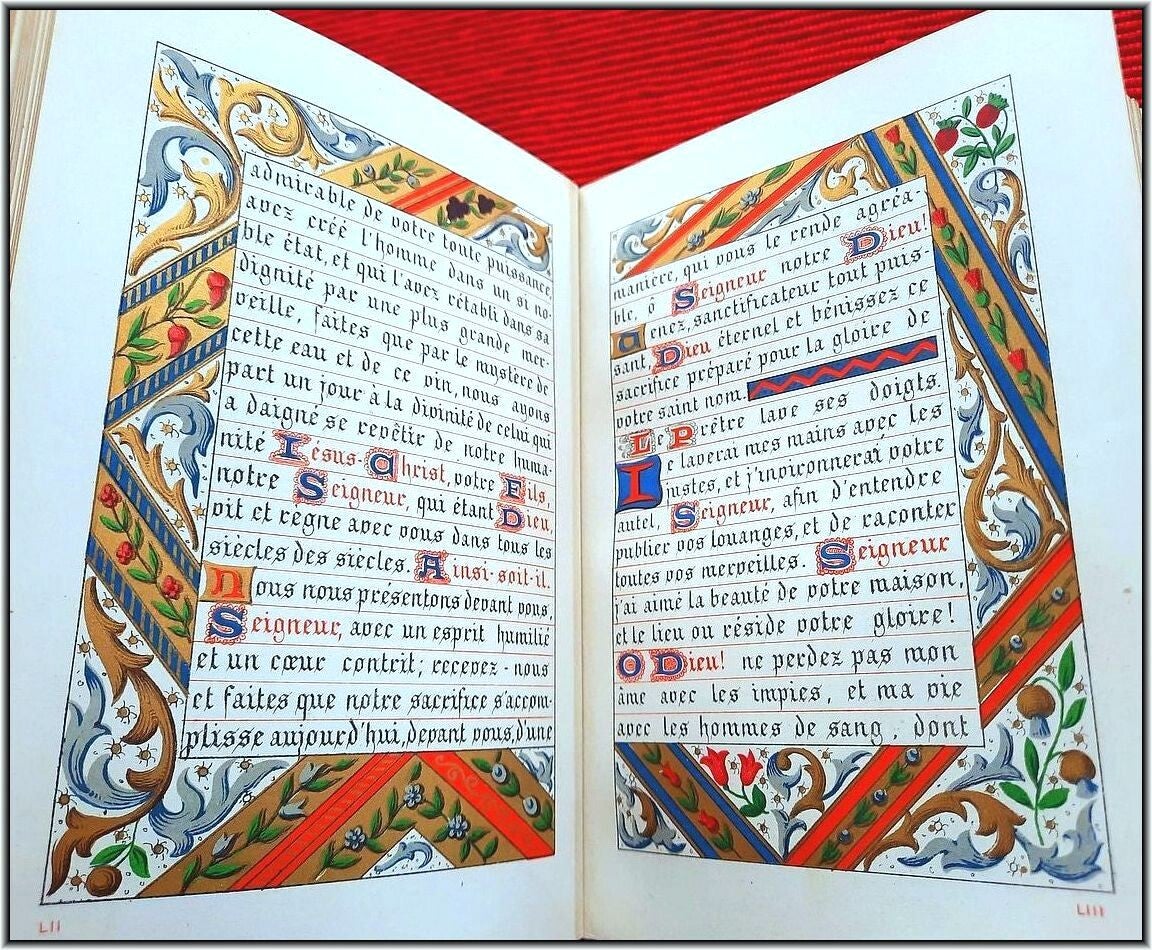 admirable de votre toute puissance,
avez créé l'homme dans un si no-
ble état, et qui l'avez rétabli dans sa
dignité par une plus grande mer-
veille, faites que par le mystère de
cette eau et de ce vin, nous ayons
part un jour à la divinité de celui qui
a daigné se revêtir de notre huma-
nité Iésus-Christ, votre Fils,
notre Seigneur, qui étant Dieu,
vit et règne avec vous dans tous les
siècles des siècles. Ainsi-soit-il.
Nous nous présentons devant vous,
Seigneur, avec un esprit humilié
et un cœur contrit; recevez-nous
et faites que notre sacrifice s'accom-
plisse aujourd'hui, devant vous, d'une
LII
manière, qui vous le rende agréa-
ble, ô Seigneur notre Dieu!
Venez, sanctificateur tout puis-
sant, Dieu éternel et bénissez ce
sacrifice préparé pour la gloire de
votre saint nom.
Le Prêtre lave ses doigts.
Ie laverai mes mains avec les
justes, et j'nvironnerai votre
autel, Seigneur, afin d'entendre
publier vos louanges, et de raconter
toutes vos merveilles. Seigneur
j'ai aimé la beauté de votre maison,
et le lieu ou réside votre gloire!
O Dieu! ne perdez pas mon
âme avec les impies, et ma vie
avec les hommes de sang, dont
LIII